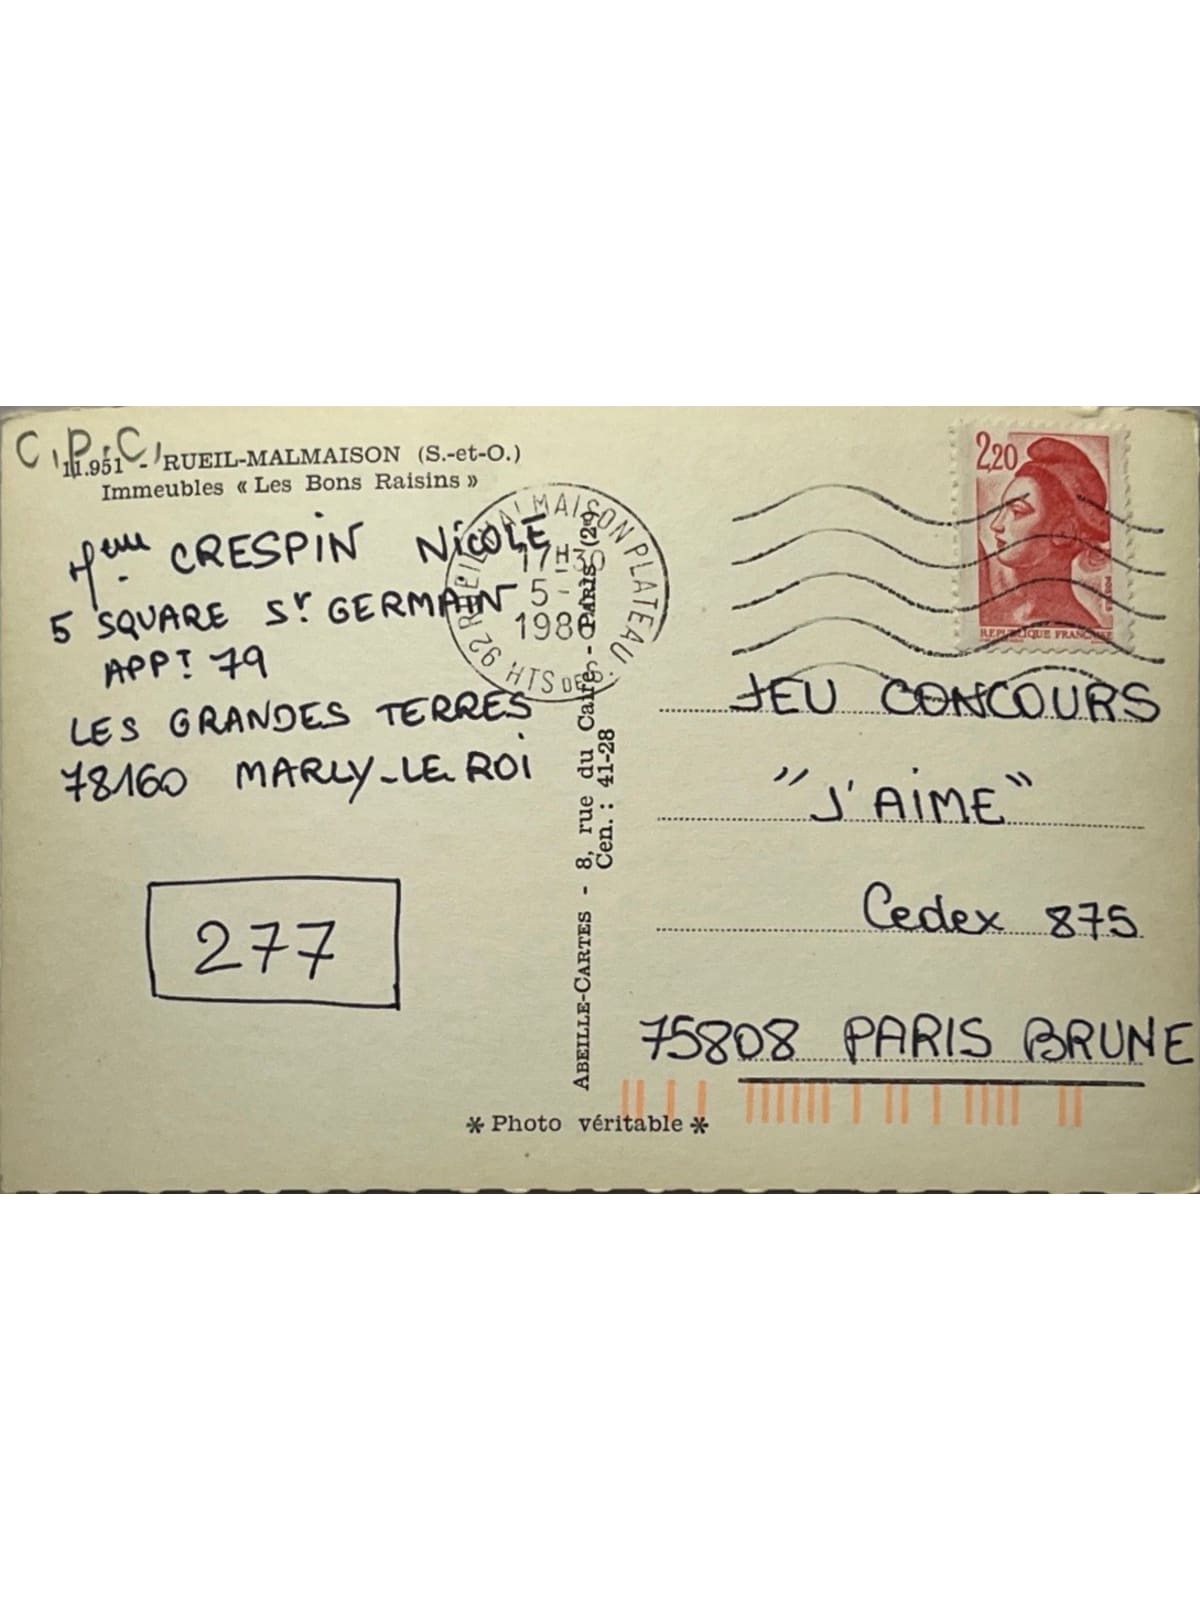 C.P.C.
11.951 - RUEIL-MALMAISON (S.-et-O.)
Immeubles « Les Bons Raisins »
Mme CRESPIN NICOLE
5 SQUARE St GERMAIN
APPT 79
LES GRANDES TERRES
78160 MARLY-LE-ROI
277
92 RUEIL MALMAISON PLATEAU
17H30
5-
HTS DE S.
ABEILLE-CARTES - 8, rue du Caire - PARIS (2e)
Cen. : 41-28
* Photo véritable *
2,20
REPUBLIQUE FRANÇAISE
JEU CONCOURS
"J'AIME"
Cedex 875
75808 PARIS BRUNE